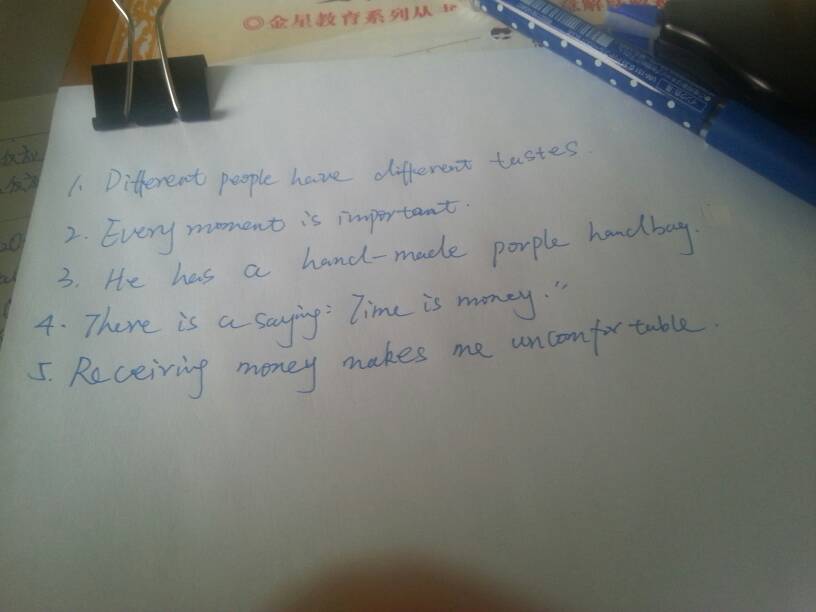 ◎金星教育系列丛书
1. Different people have different tastes.
2. Every moment is important.
3. He has a hand-made porple handbag.
4. There is a saying: Time is money."
5. Receiving money makes me unconfortable.